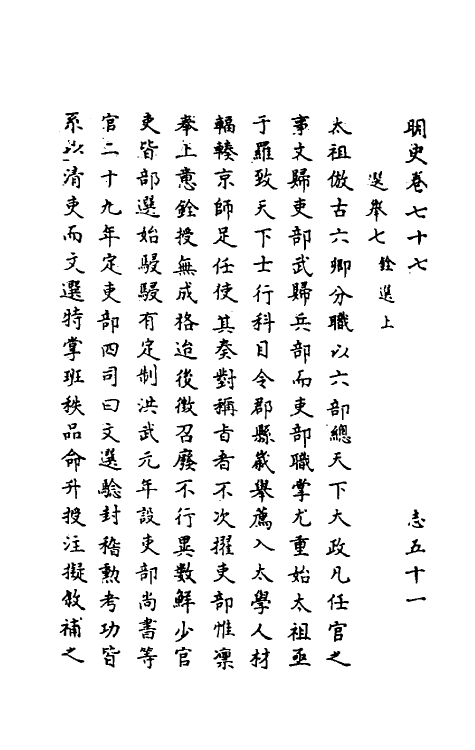 明史卷七十七 志五十一
選舉七 銓選上
太祖倣古六卿分職以六部總天下大政凡任官之
事文歸吏部武歸兵部而吏部職掌尤重始太祖亟
于羅致天下士行科目令郡縣歲舉薦入太學人材
輻輳京師足任使其奏對稱旨者不次擢吏部惟凜
奉上意銓授無成格迨後徵召廢不行異數鮮少官
吏皆部選始駸駸有定制洪武元年設吏部尚書等
官二十九年定吏部四司曰文選驗封稽勳考功皆
系以清吏而文選特掌班秩品命升授注擬敘補之